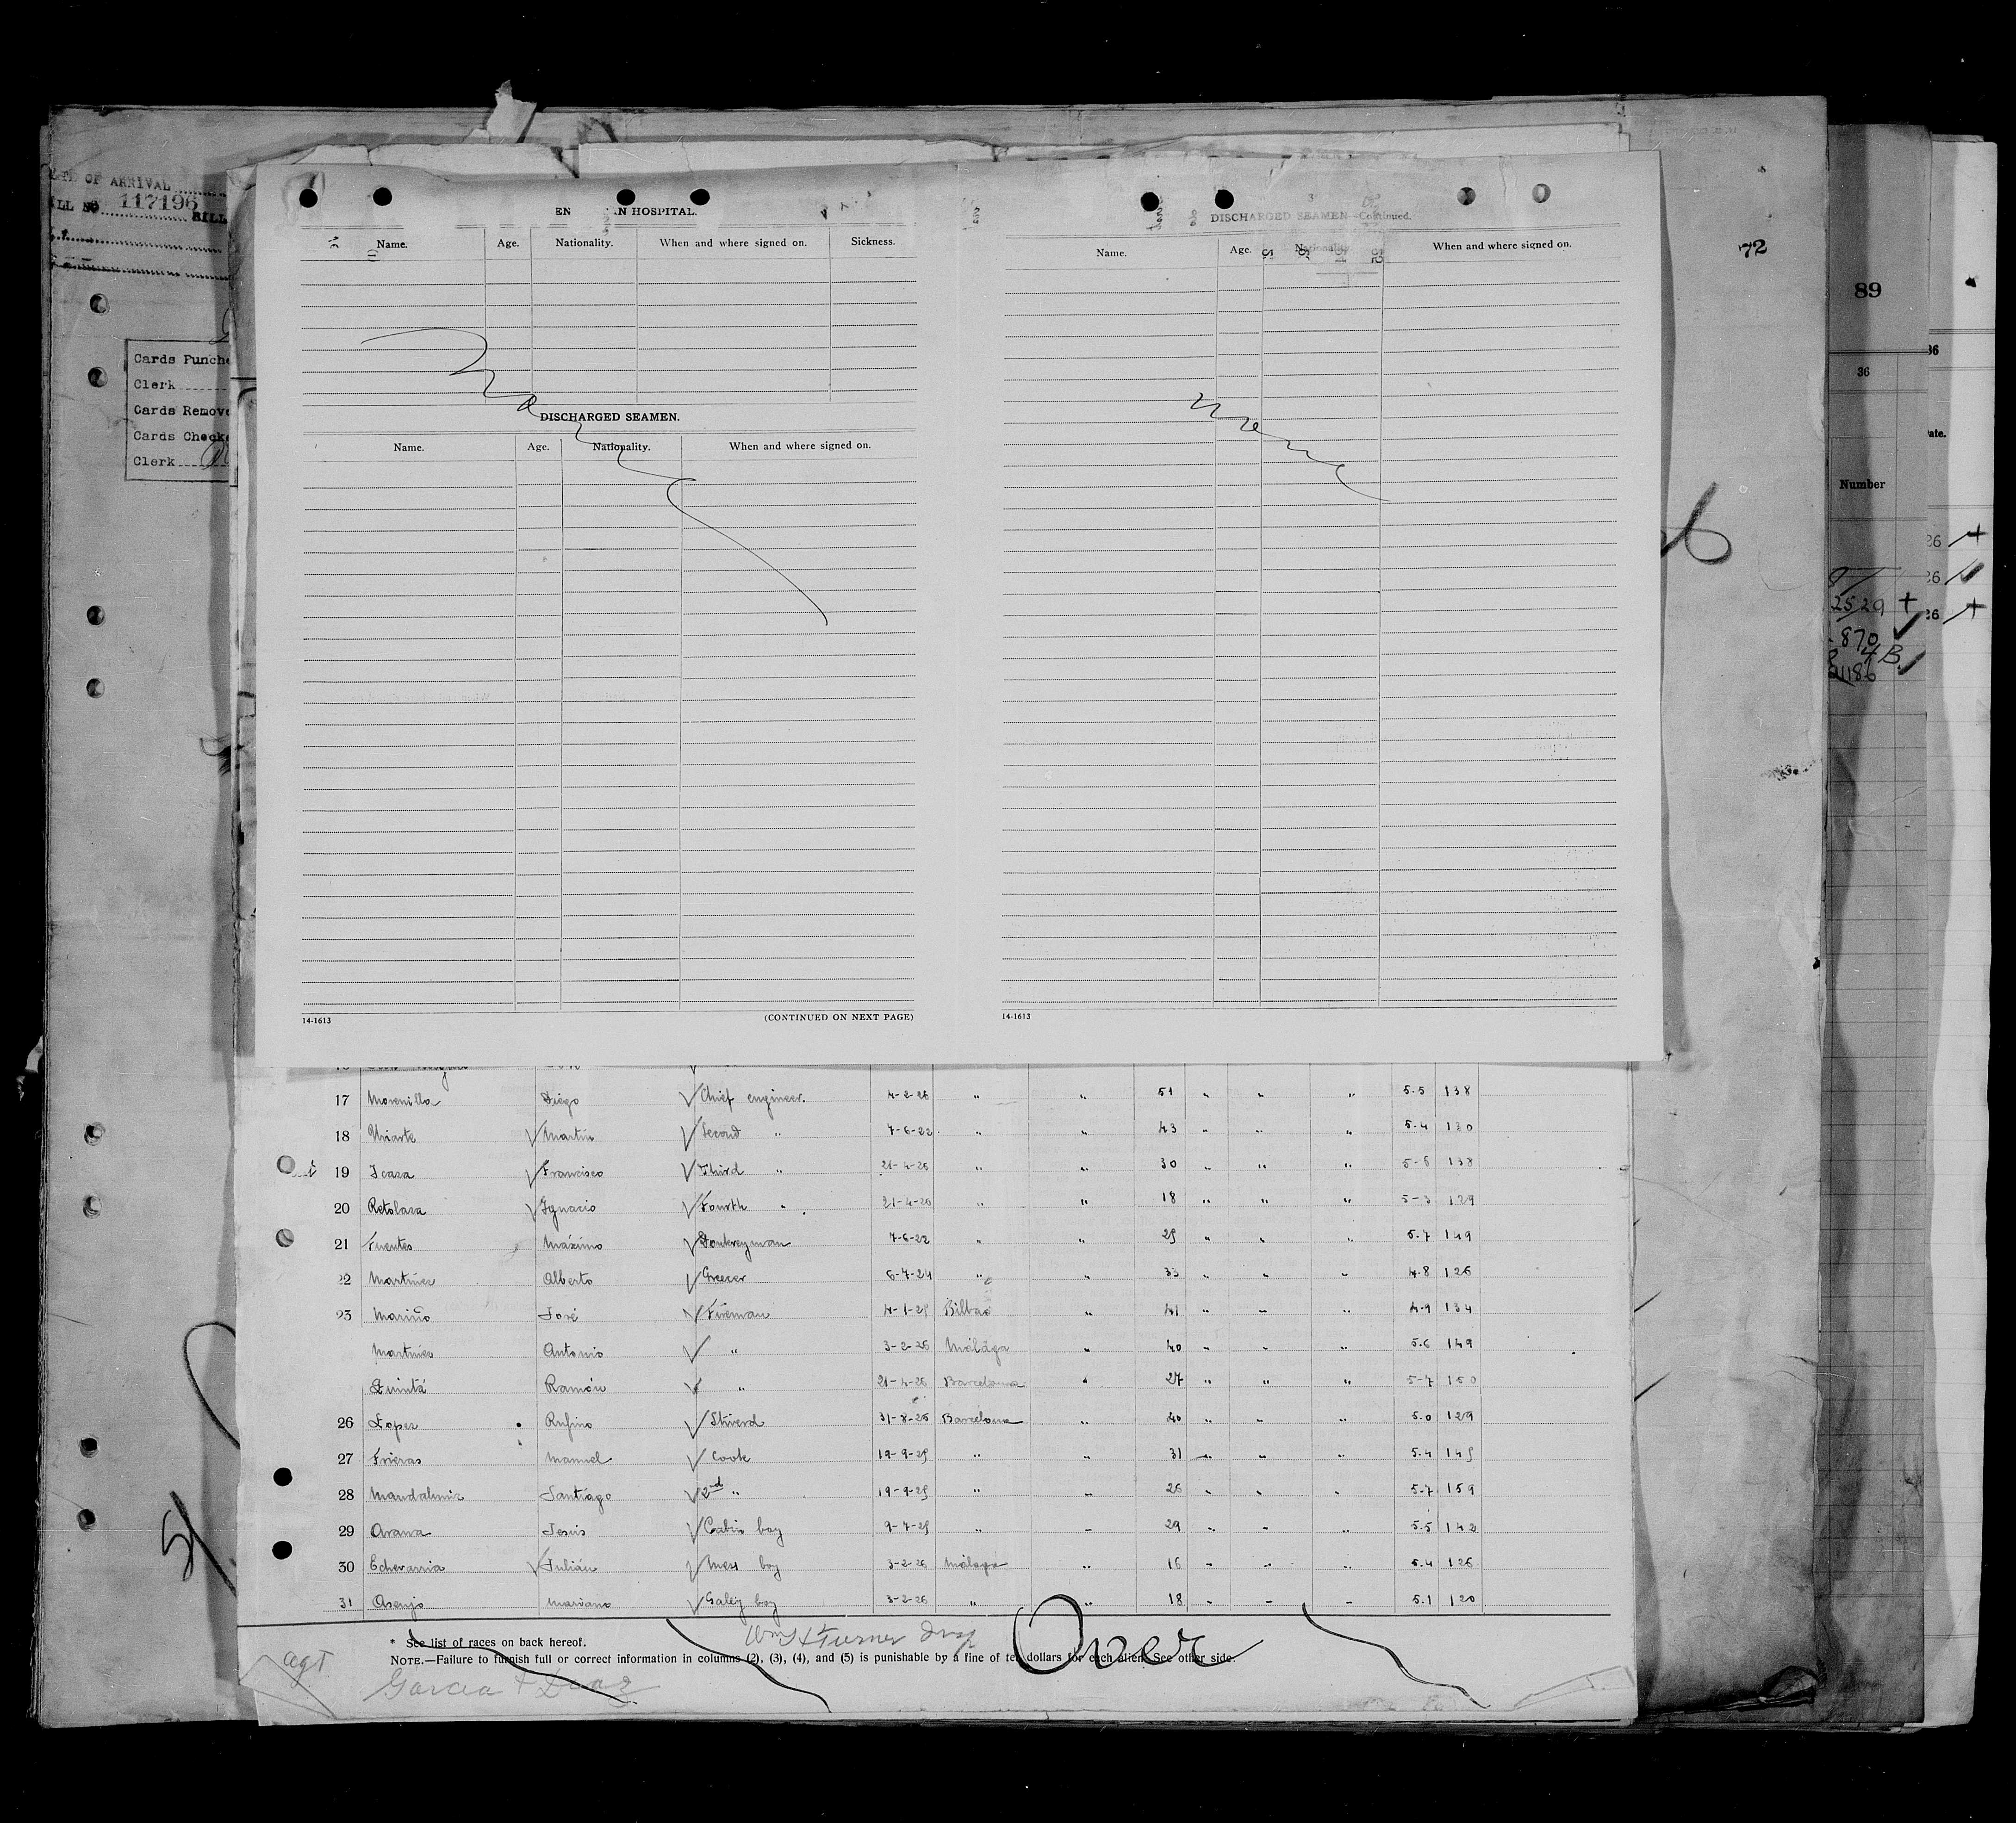 OF ARRIVAL
117196
Cards Punche
Clerk
Cards Remove
Cards Checke
Clerk
72
89
36
36
ate.
Number
26
26
26
2529 +
870
4 B
EN N HOSPITAL.
Name. Age. Nationality. When and where signed on. Sickness.
DISCHARGED SEAMEN.
Name. Age. Nationality. When and where signed on.
14-1613 (CONTINUED ON NEXT PAGE)
3
DISCHARGED SEAMEN—Continued.
Name. Age. Nationality. When and where signed on.
14-1613
17 Morenilla Diego √ Chief engineer. 4-2-26 " " 51 " " " 5.5 138
18 Uriarte √ Martín √ Second " 7-6-22 " " 43 " " " 5.4 130
19 Icaza √ Francisco √ Third " 21-4-26 " " 30 " " " 5-6 138
20 Retolaza √ Ignacio √ Fourth " 21-4-26 " " 18 " " " 5-3 129
21 Fuentes Máximo √ Donkeyman 7-6-22 " " 25 " " " 5.7 149
22 Martínez Alberto √ Greeser 6-7-24 " " 33 " " " 4.8 126
23 Mariño José √ Fireman 4-1-25 Bilbao " 41 " " " 4.9 134
Martínez Antonio √ " 3-2-26 Málaga " 40 " " " 5.6 149
Quintá Ramón √ " 21-4-26 Barcelona " 27 " " " 5-7 150
26 Lopez Rufino √ Stiverd 31-8-25 Barcelona " 40 " " " 5.0 129
27 Frieras Manuel √ Cook 19-9-25 " " 31 " " " 5.4 145
28 Mandaluniz Santiago √ 2nd " 19-9-25 " " 26 " " " 5.7 159
29 Arana Jesús √ Cabin boy 9-7-25 " " 29 " " " 5.5 142
30 Echevarria √ Julián √ Mess boy 3-2-26 Málaga " 16 " " " 5.4 126
31 Asenjo Mariano √ Galey boy 3-2-26 " " 18 " " " 5.1 120
* See list of races on back hereof.
Wm H Turner Insp
Over
NOTE.—Failure to furnish full or correct information in columns (2), (3), (4), and (5) is punishable by a fine of ten dollars for each alien. See other side.
agt
Garcia & Diaz